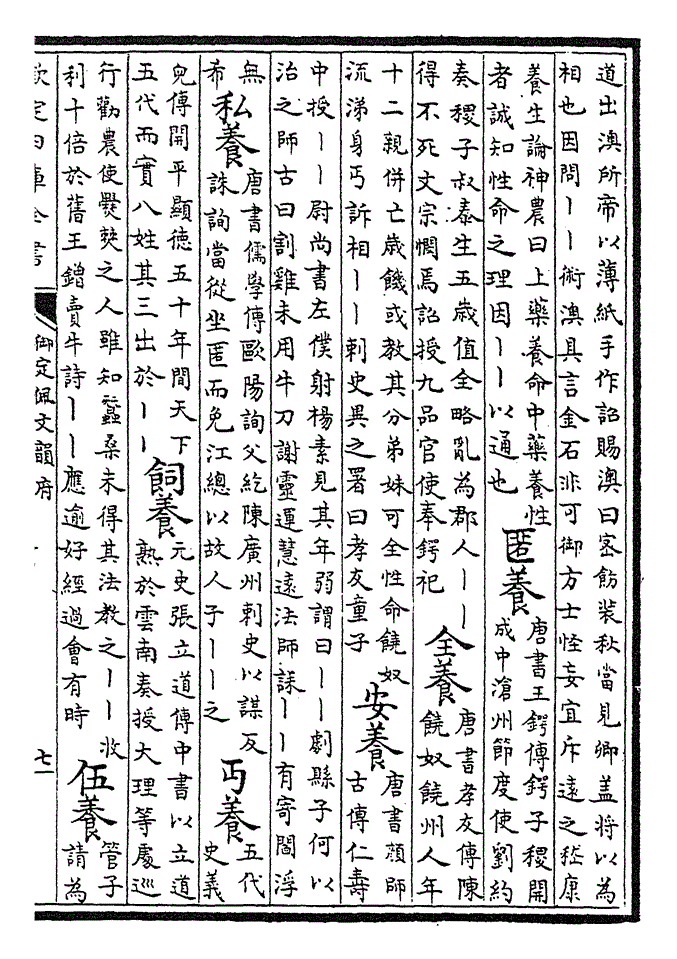 道出澳所帝以薄紙手作詔賜澳曰宻飭裝秋當見卿盖將以為
相也因問丨丨術澳具言金石非可御方士怪妄宜斥遠之嵇康
養生論神農曰上藥養命中藥養性
者誠知性命之理因丨丨以通也
匿養
唐書王鍔傳鍔子稷開
成中滄州節度使劉約
奏稷子叔泰生五歲值全略亂為郡人丨丨
得不死文宗憫焉詔授九品官使奉鍔祀
全養
唐書孝友傳陳
饒奴饒州人年
十二親併亡歲饑或教其分弟妹可全性命饒奴
流涕身丐訴相丨丨刺史異之署曰孝友童子
安養
唐書顔師
古傳仁壽
中授丨丨尉尚書左僕射楊素見其年弱謂曰丨丨劇縣子何以
治之師古曰割雞未用牛刀謝靈運慧遠法師誄丨丨有寄閻浮
無
希
私養
唐書儒學傳歐陽詢父紇陳廣州刺史以謀反
誅詢當從坐匿而免江總以故人子丨丨之
丐養
五代
史義
兒傳開平顯德五十年間天下
五代而實八姓其三出於丨丨
飼養
元史張立道傳中書以立道
熟於雲南奏授大理等處巡
行勸農使爨僰之人雖知蠶桑未得其法教之丨丨收
利十倍於舊王鏳賣牛詩丨丨應逾好經過會有時
伍養
管子
請為
欽定四庫全書
御定佩文韻府
七一